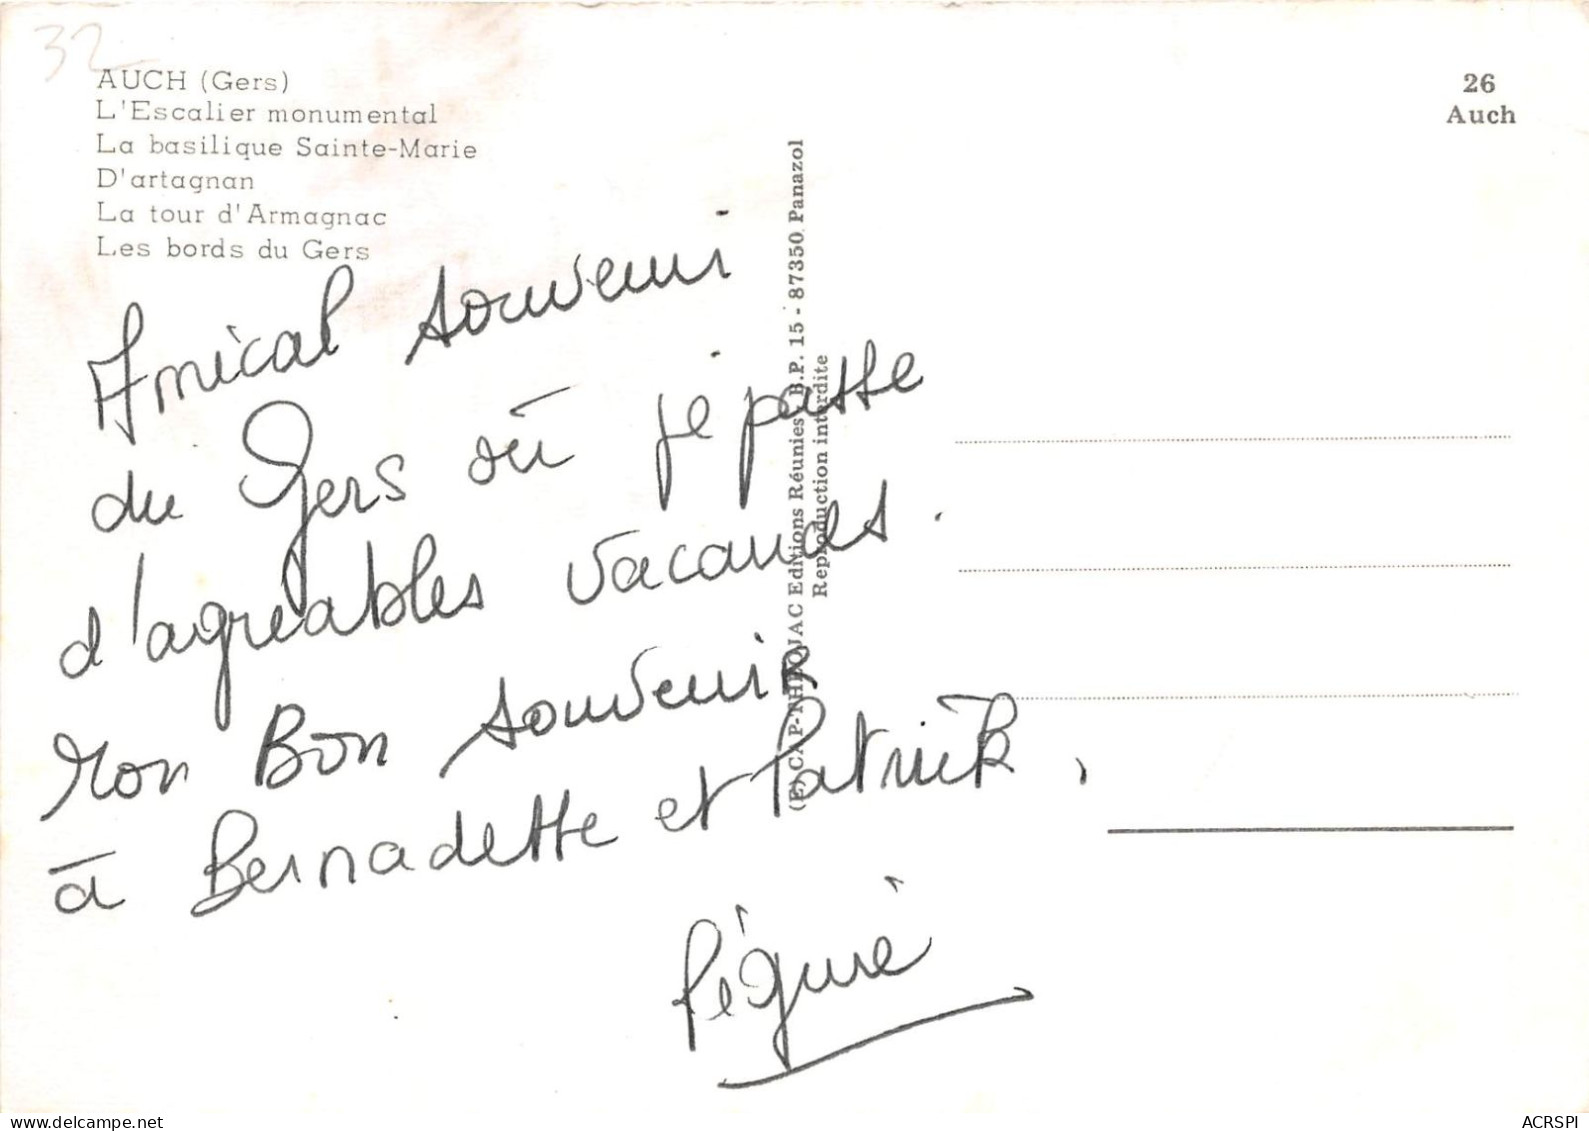 32
AUCH (Gers)
L'Escalier monumental
La basilique Sainte-Marie
D'artagnan
La tour d'Armagnac
Les bords du Gers
26
Auch
(E) CAP-THEOJAC Editions Réunies B.P. 15 - 87350 Panazol
Reproduction interdite
Amical souvenir
du Gers où je passe
d'agréables vacances.
Mon Bon souvenir
à Bernadette et Patrick,
Péguré
ACRSPI